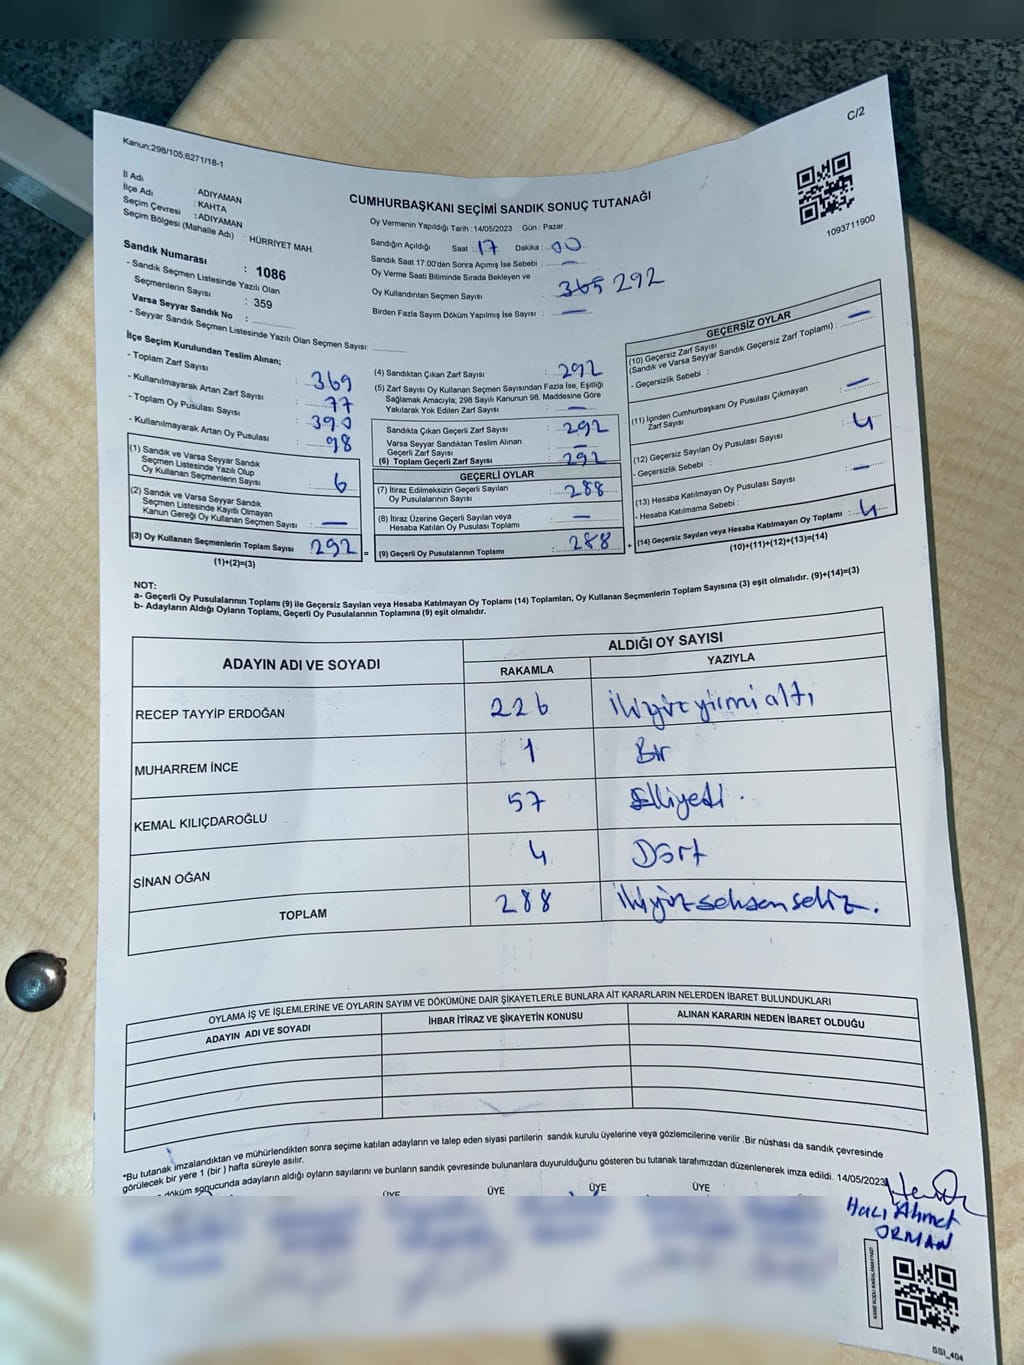 C/2
Kanun;298/105;6271/18-1
İl Adı : ADIYAMAN
İlçe Adı : KAHTA
Seçim Çevresi : ADIYAMAN
Seçim Bölgesi (Mahalle Adı) : HÜRRİYET MAH
CUMHURBAŞKANI SEÇİMİ SANDIK SONUÇ TUTANAĞI
Oy Vermenin Yapıldığı Tarih : 14/05/2023 Gün : Pazar
Sandığın Açıldığı Saat : 17 Dakika : 00
Sandık Saat 17:00'den Sonra Açılmış İse Sebebi : —
Oy Verme Saati Bitiminde Sırada Bekleyen ve
Oy Kullandırılan Seçmen Sayısı : 365 292
Birden Fazla Sayım Döküm Yapılmış İse Sayısı : —
1093711900
Sandık Numarası : 1086
- Sandık Seçmen Listesinde Yazılı Olan
Seçmenlerin Sayısı : 359
Varsa Seyyar Sandık No :
- Seyyar Sandık Seçmen Listesinde Yazılı Olan Seçmen Sayısı:
İlçe Seçim Kurulundan Teslim Alınan;
- Toplam Zarf Sayısı : 369
- Kullanılmayarak Artan Zarf Sayısı : 77
- Toplam Oy Pusulası Sayısı : 390
- Kullanılmayarak Artan Oy Pusulası : 98
(1) Sandık ve Varsa Seyyar Sandık
Seçmen Listesinde Yazılı Olup
Oy Kullanan Seçmenlerin Sayısı : 6
(2) Sandık ve Varsa Seyyar Sandık
Seçmen Listesinde Kayıtlı Olmayan
Kanun Gereği Oy Kullanan Seçmen Sayısı : —
(3) Oy Kullanan Seçmenlerin Toplam Sayısı 292 =
(1)+(2)=(3)
(4) Sandıktan Çıkan Zarf Sayısı : 292
(5) Zarf Sayısı Oy Kullanan Seçmen Sayısından Fazla İse, Eşitliği
Sağlamak Amacıyla; 298 Sayılı Kanunun 98. Maddesine Göre
Yakılarak Yok Edilen Zarf Sayısı : —
Sandıkta Çıkan Geçerli Zarf Sayısı : 292
Varsa Seyyar Sandıktan Teslim Alınan
Geçerli Zarf Sayısı : —
(6) Toplam Geçerli Zarf Sayısı : 292
GEÇERLİ OYLAR
(7) İtiraz Edilmeksizin Geçerli Sayılan
Oy Pusulalarının Sayısı : 288
(8) İtiraz Üzerine Geçerli Sayılan veya
Hesaba Katılan Oy Pusulası Toplamı : —
(9) Geçerli Oy Pusulalarının Toplamı : 288 +
GEÇERSİZ OYLAR
(10) Geçersiz Zarf Sayısı
(Sandık ve Varsa Seyyar Sandık Geçersiz Zarf Toplamı) : —
- Geçersizlik Sebebi :
(11) İçinden Cumhurbaşkanı Oy Pusulası Çıkmayan
Zarf Sayısı : —
(12) Geçersiz Sayılan Oy Pusulası Sayısı : 4
- Geçersizlik Sebebi :
(13) Hesaba Katılmayan Oy Pusulası Sayısı : —
- Hesaba Katılmama Sebebi :
(14) Geçersiz Sayılan veya Hesaba Katılmayan Oy Toplamı : 4
(10)+(11)+(12)+(13)=(14)
NOT:
a- Geçerli Oy Pusulalarının Toplamı (9) ile Geçersiz Sayılan veya Hesaba Katılmayan Oy Toplamı (14) Toplamları, Oy Kullanan Seçmenlerin Toplam Sayısına (3) eşit olmalıdır. (9)+(14)=(3)
b- Adayların Aldığı Oyların Toplamı, Geçerli Oy Pusulalarının Toplamına (9) eşit olmalıdır.
ADAYIN ADI VE SOYADI ALDIĞI OY SAYISI
RAKAMLA YAZIYLA
RECEP TAYYİP ERDOĞAN 226 ikiyüz yirmi altı
MUHARREM İNCE 1 Bir
KEMAL KILIÇDAROĞLU 57 Elliyedi .
SİNAN OĞAN 4 Dört
TOPLAM 288 ikiyüz seksen sekiz.
OYLAMA İŞ VE İŞLEMLERİNE VE OYLARIN SAYIM VE DÖKÜMÜNE DAİR ŞİKAYETLERLE BUNLARA AİT KARARLARIN NELERDEN İBARET BULUNDUKLARI
ADAYIN ADI VE SOYADI İHBAR İTİRAZ VE ŞİKAYETİN KONUSU ALINAN KARARIN NEDEN İBARET OLDUĞU
*Bu tutanak imzalandıktan ve mühürlendikten sonra seçime katılan adayların ve talep eden siyasi partilerin sandık kurulu üyelerine veya gözlemcilerine verilir .Bir nüshası da sandık çevresinde
görülecek bir yere 1 (bir ) hafta süreyle asılır.
döküm sonucunda adayların aldığı oyların sayılarını ve bunların sandık çevresinde bulunanlara duyurulduğunu gösteren bu tutanak tarafımızdan düzenlenerek imza edildi. 14/05/2023
ÜYE ÜYE ÜYE ÜYE
Hacı Ahmet
ORMAN
SSI_404